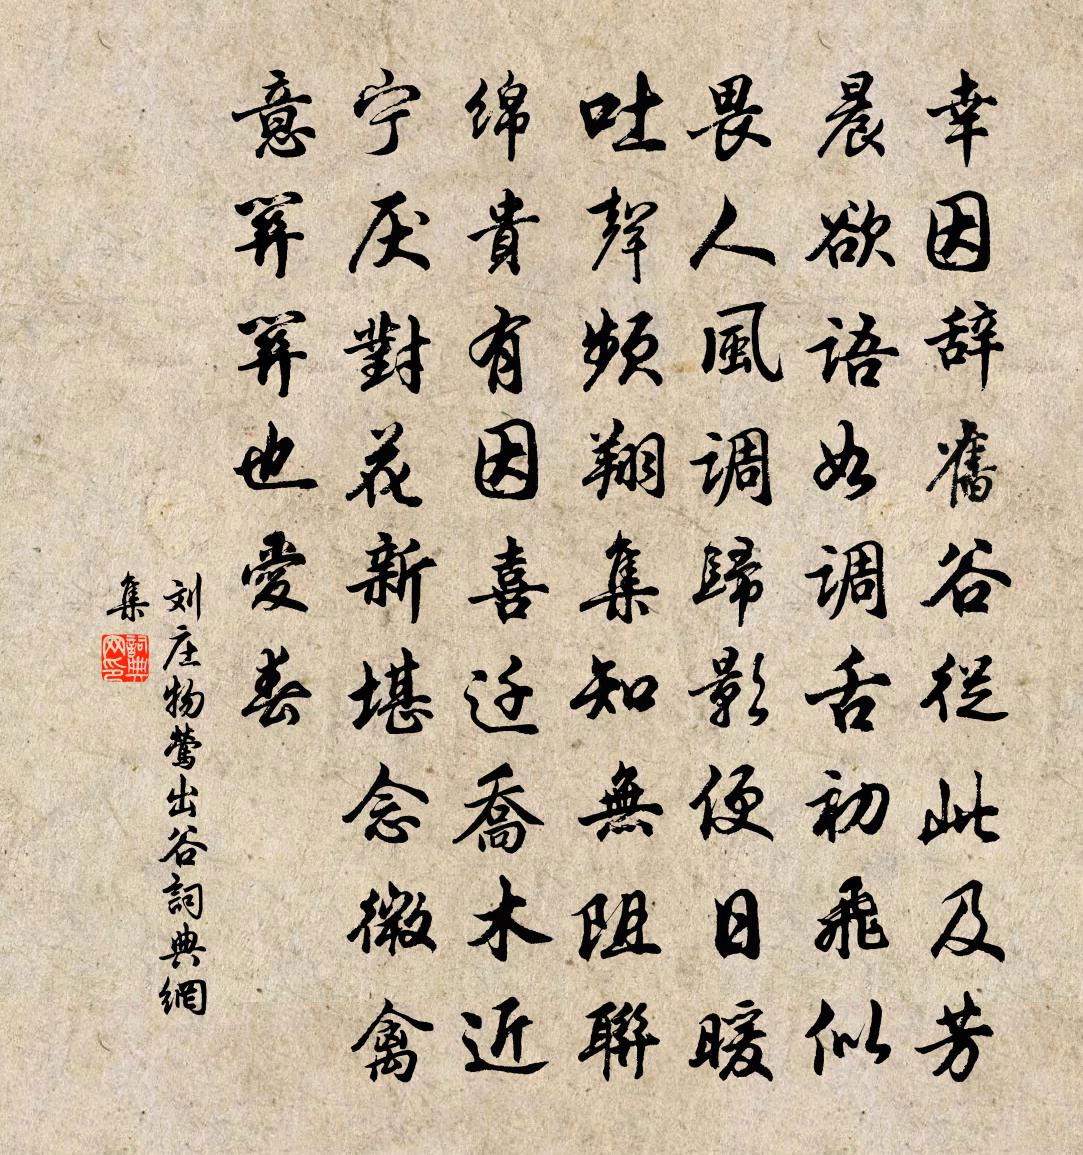 幸因辞舊谷從此及芳
晨欲語如调舌初飛似
畏人風调歸影便日暖
吐聲頻翔集知無阻聯
绵貴有因喜迁喬木近
宁厌對花新堪念微禽
意关关也愛春
刘庄物莺出谷詞典網
集
詞典网印